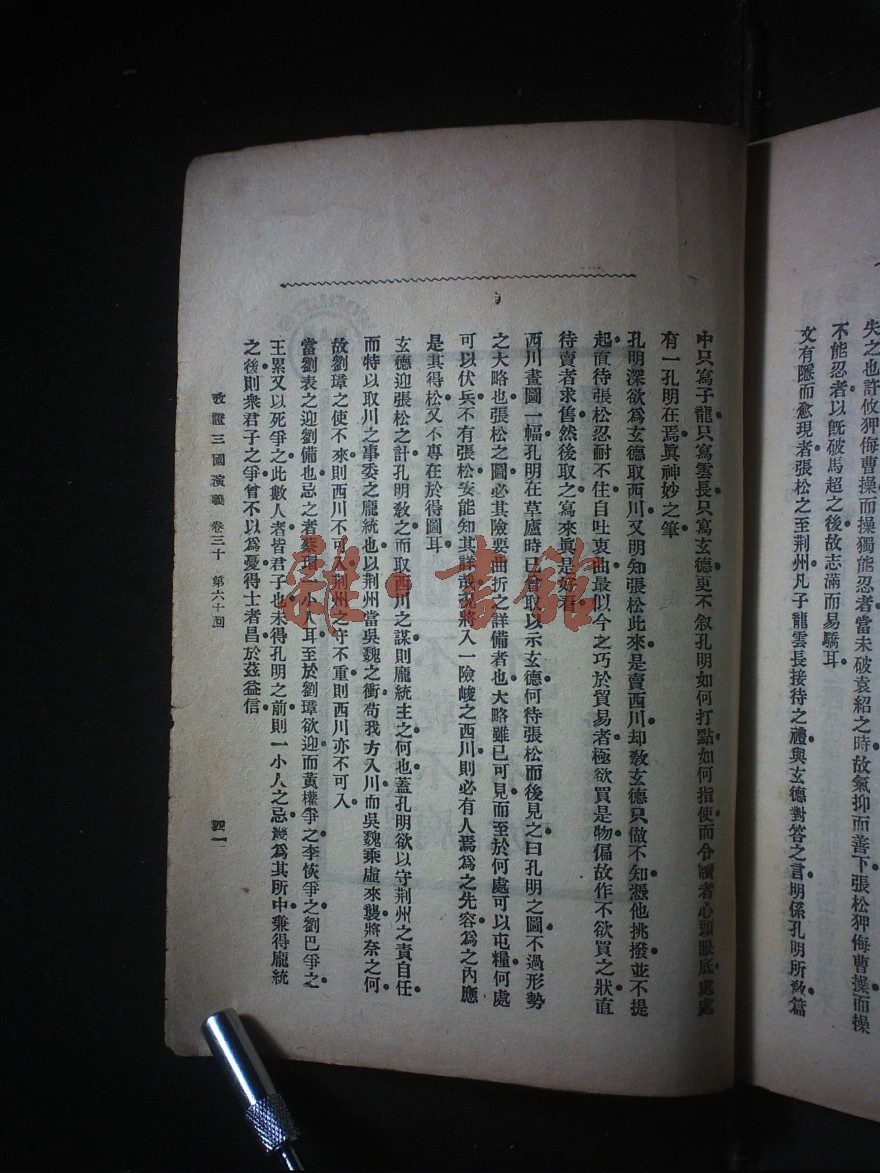 失之也許攸狎侮曹操而操獨能忍者當未破袁紹之時故氣抑而善下張松狎侮曹操而操
不能忍者以旣破馬超之後故志滿而易驕耳
文有隱而愈現者張松之至荆州凡子龍雲長接待之禮與玄德對答之言明係孔明所敎篇
中只寫子龍只寫雲長只寫玄德更不叙孔明如何打點如何指使而令讀者心頭眼底處處
有一孔明在焉眞神妙之筆
孔明深欲爲玄德取西川又明知張松此來是賣西川却敎玄德只做不知憑他挑撥並不提
起直待張松忍耐不住自吐衷曲最似今之巧於貿易者極欲買是物偏故作不欲買之狀直
待賣者求售然後取之寫來眞是好看
西川畫圖一幅孔明在草廬時已曾取以示玄德何待張松而後見之曰孔明之圖不過形勢
之大略也張松之圖必其險要曲折之詳備者也大略雖已可見而至於何處可以屯糧何處
可以伏兵不有張松安能知其詳哉況將入一險峻之西川則必有人焉爲之先容爲之內應
是其得松又不專在於得圖耳
玄德迎張松之計孔明敎之而取西川之謀則龐統主之何也蓋孔明欲以守荆州之責自任
而特以取川之事委之龐統也以荆州當吳魏之衝苟我方入川而吳魏乘虛來襲將奈之何
故劉璋之使不來則西川不可入荆州之守不重則西川亦不可入
當劉表之迎劉備也忌之者蔡瑁一小人耳至於劉璋欲迎而黃權爭之李恢爭之劉巴爭之
王累又以死爭之此數人者皆君子也未得孔明之前則一小人之忌幾爲其所中兼得龐統
之後則衆君子之爭曾不以爲憂得士者昌於茲益信
攷證三國演義 卷三十 第六十回
四一
雜·書館